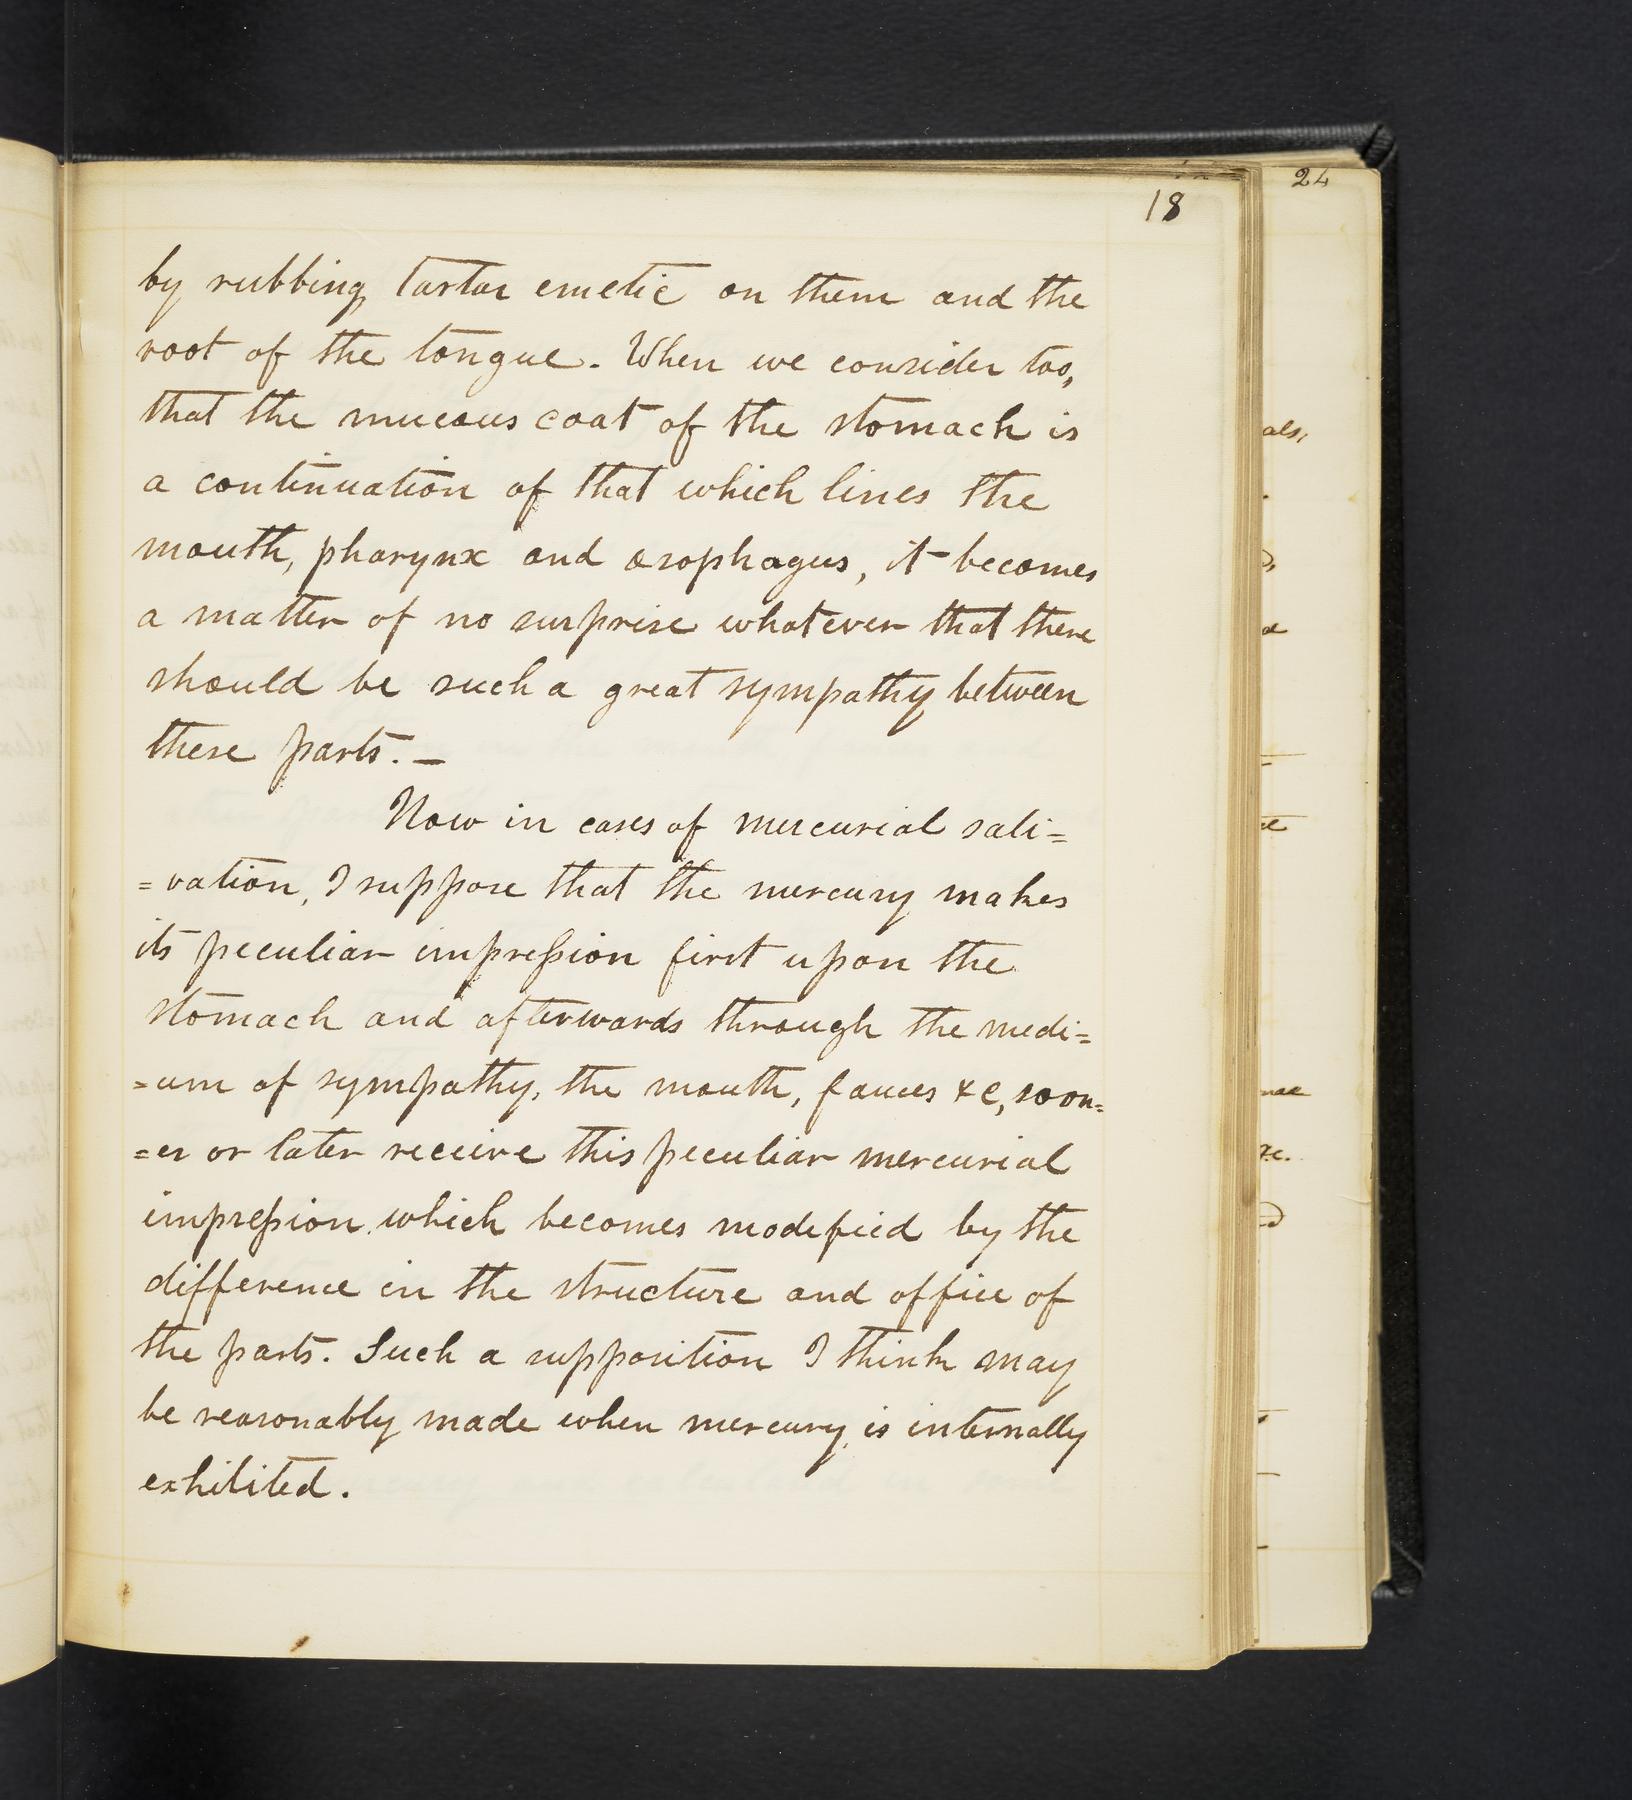 24
18
by rubbing tartar emetic on them and the
root of the tongue. When we consider too,
that the mucous coat of the stomach is
a continuation of that which lines the
mouth, pharynx and œsophagus, it becomes
a matter of no surprise whatever that there
should be such a great sympathy between
these parts. —
Now in cases of mercurial sali=
=vation, I suppose that the mercury makes
its peculiar impreſsion first upon the
stomach and afterwards through the medi=
=um of sympathy, the mouth, fauces &c, soon=
=er or later receive this peculiar mercurial
impreſsion, which becomes modified by the
difference in the structure and office of
the parts. Such a supposition I think may
be reasonably made when mercury is internally
exhibited.